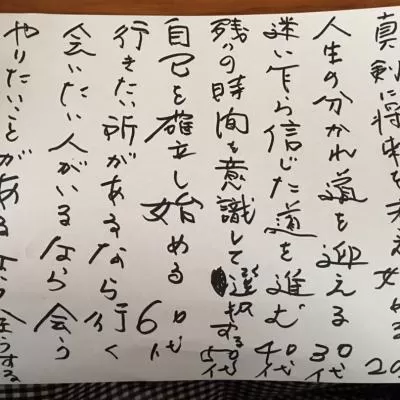 真剣に将来を考え始める 20
人生の分かれ道を迎える 30代
迷い乍ら信じた道を進む 40代
残りの時間を意識して選択する 50代
自己を確立し始める 60代
行きたい所があるなら行く
会いたい人がいるなら会う
やりたいことがあるなら全うする